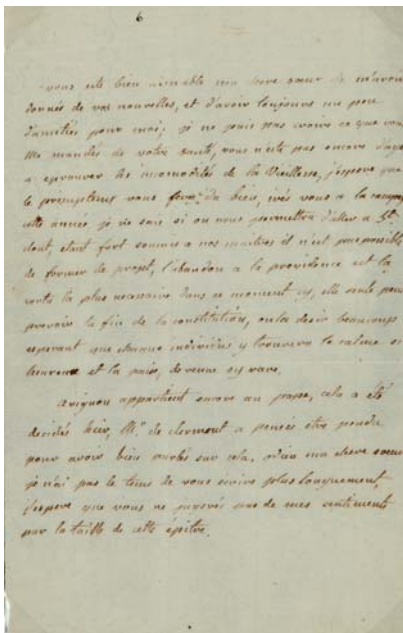 6
vous este bien aimable ma chere soeur de m'avoir
donnés de vos nouvelles, et d'avoir toujours un peu
d'amitiés pour moi; je ne puis pas croire ce que vous
me mandés de votre santé, vous n'este pas encore d'age
a eprouver les incomodités de la Vieillesse, j'espere que
le presegtems vous fera du bien, irés vous a la campag
cette année je ne sais si on nous permettra d'aller a St
clout, etant fort soumis a nos maitres il n'est pas possible
de former de projet, l'abandon a la providence est la
vertu la plus necessaire dans ce moment cy, elle seule peut
prevoir la fin de la constitution, on la desir beaucoup
esperant que chaque individües y trouvera le calme si
heureux et la paix, devenue sy rare.
Avignon appartient encore au pappe, cela a été
decidés hier, Mr. de clermont a pensés etre pendu
pour avoir bien parlés sur cela, adieu ma chere soeur
je n'ai pas le tems de vous ecrire plus longuement,
j'espere que vous ne jugerés pas de mes sentiments
par la taille de cette épitre.